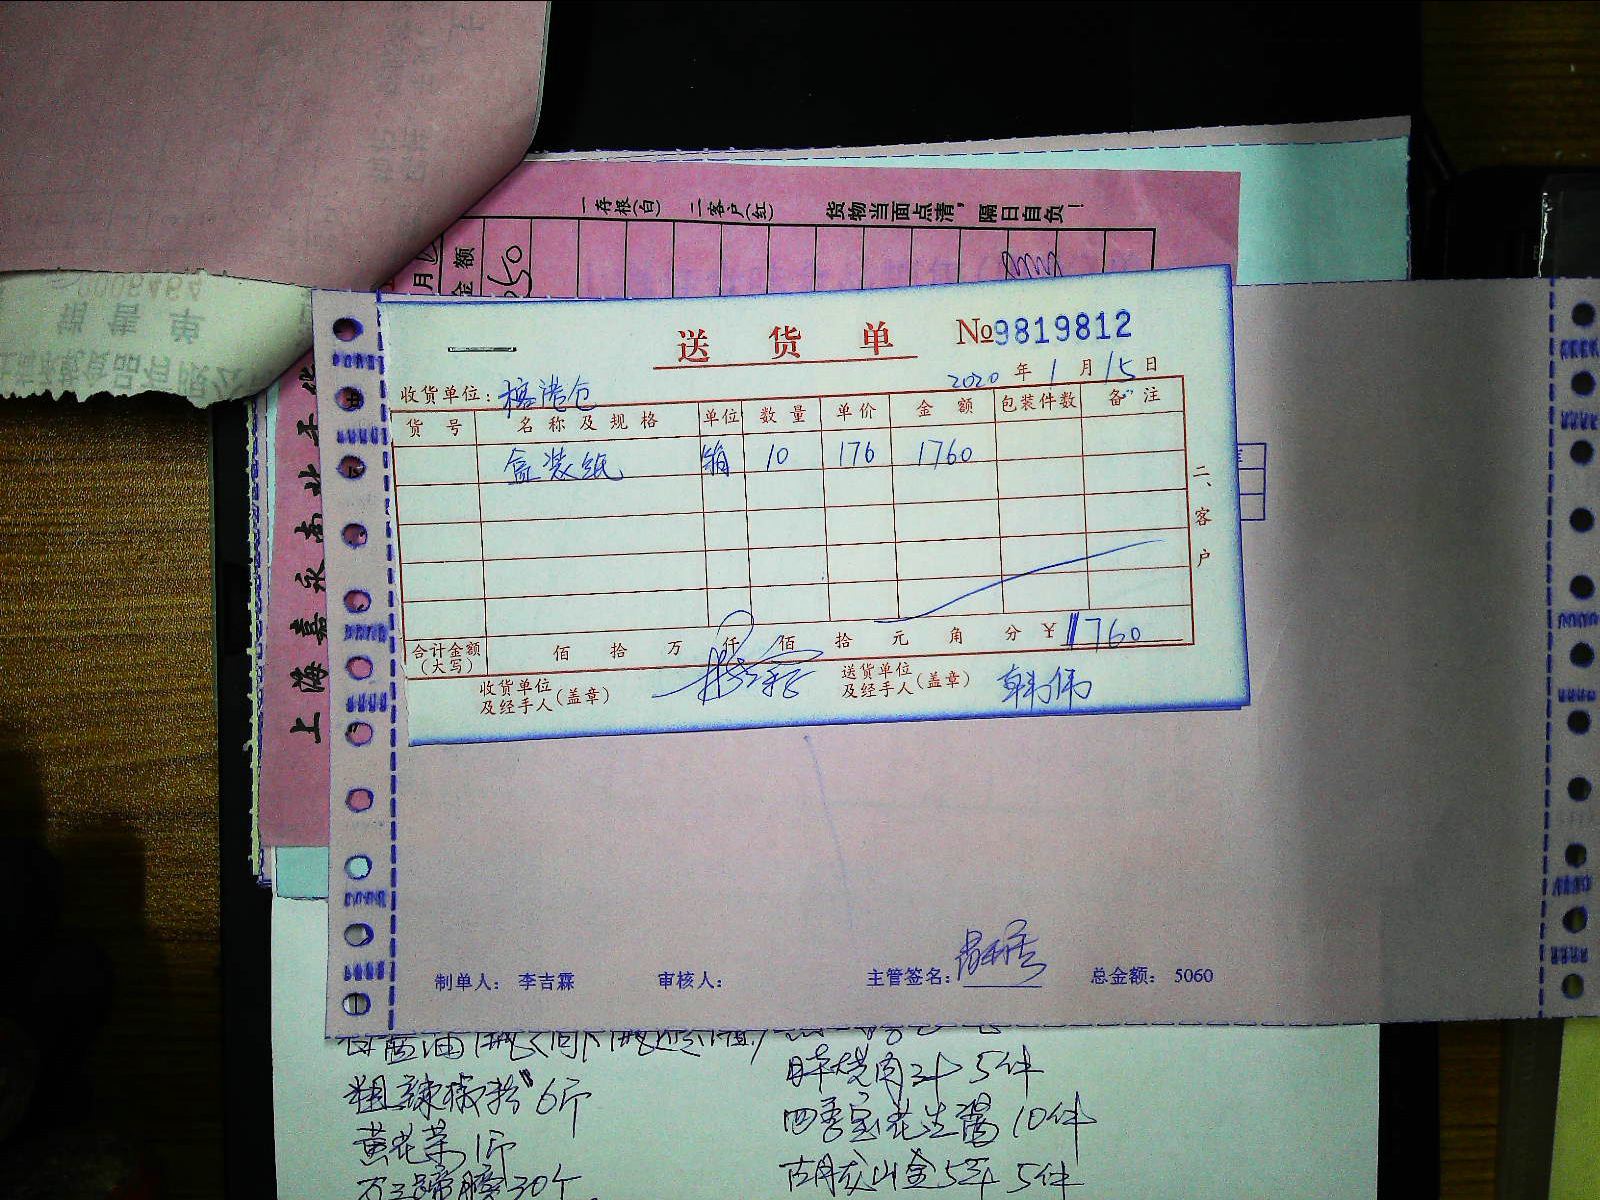 一存根(白) 二客户(红) 货物当面点清，隔日自负！
金额
月
0006464
销售单
上海嘉永南北干货
送货单 №9819812
2020年1月15日
收货单位：
货号 名称及规格 单位 数量 单价 金额 包装件数 备注
盒装纸 箱 10 176 1760
二、客户
合计金额(大写) 佰 拾 万 仟 佰 拾 元 角 分 ¥1760
收货单位及经手人(盖章)
送货单位及经手人(盖章) 韩伟
制单人： 李吉霖 审核人： 主管签名： 总金额： 5060
粗辣椒粉 6斤
黄花菜 1斤
5件
四季宝花生酱 10件
古越龙山金5年 5件